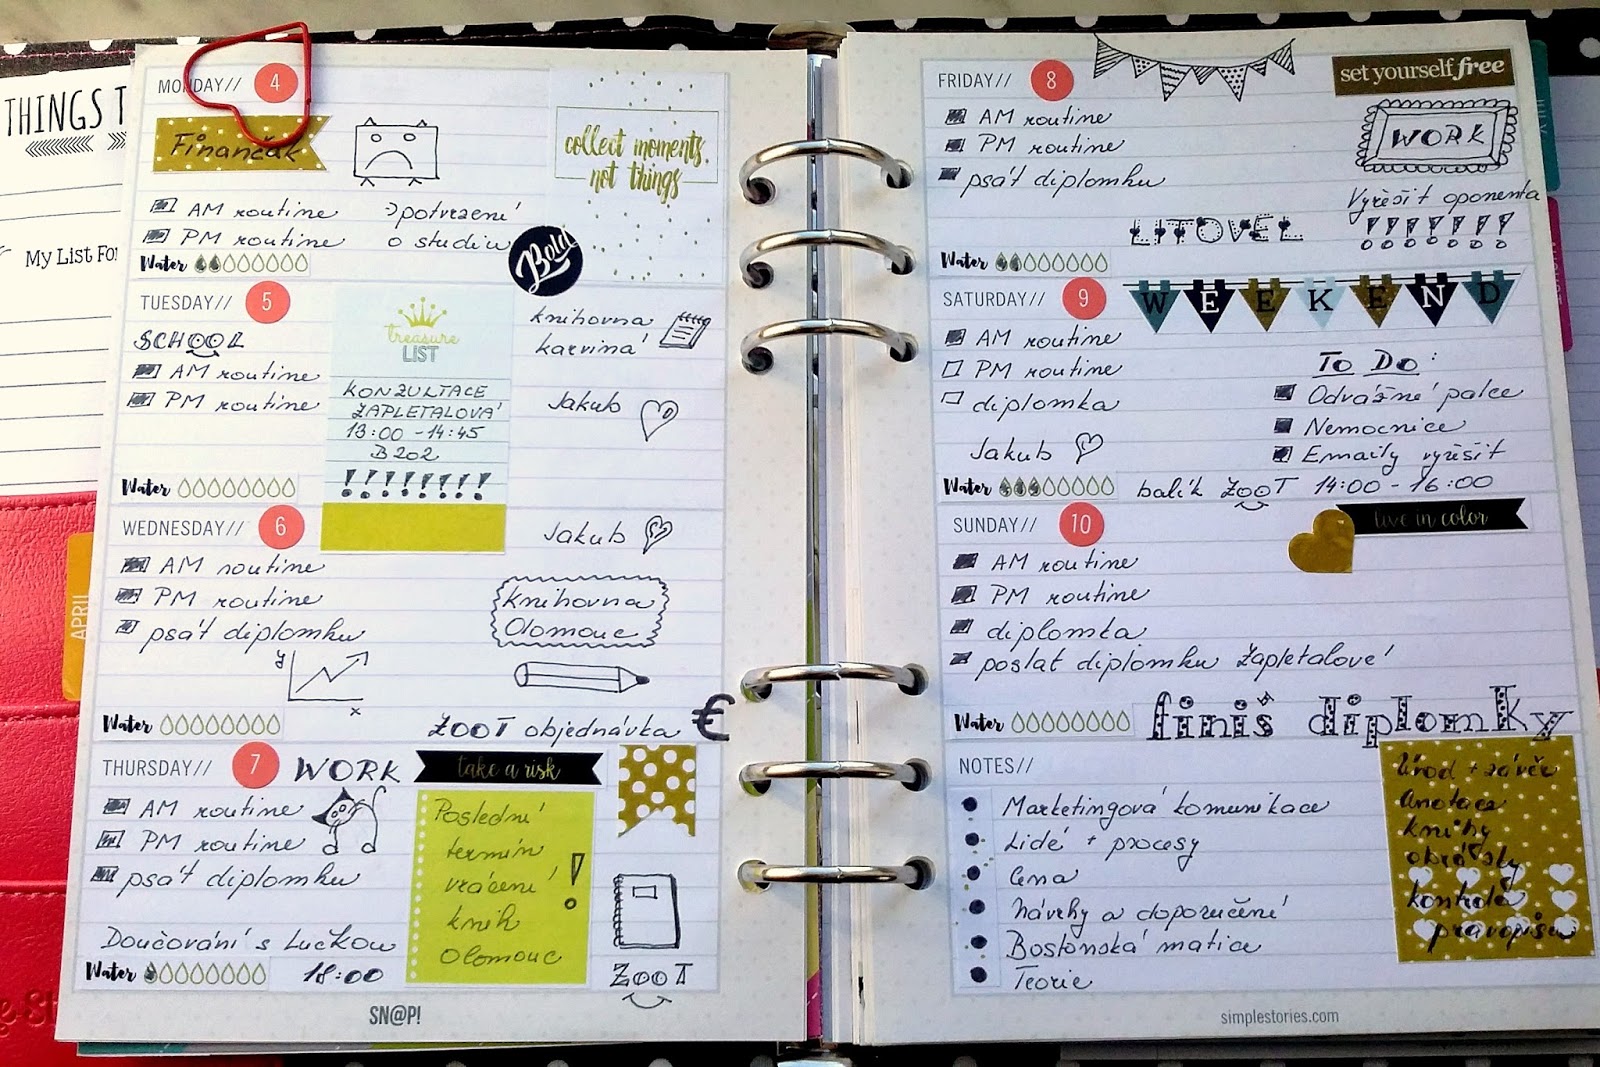 THINGS T
My List For
APRIL
MONDAY// 4
Finančák
collect moments,
not things
AM routine
PM routine
->potvrzení
o studiu
Bold
Water
TUESDAY// 5
SCHOOL
AM routine
PM routine
treasure
LIST
KONZULTACE
ZAPLETALOVÁ
13:00 - 14:45
B202
!!!!!!!!
knihovna
karviná
Jakub
Water
WEDNESDAY// 6
AM routine
PM routine
psát diplomku
y
x
Jakub
knihovna
Olomouc
Water
ZOOT objednávka €
THURSDAY// 7
WORK
take a risk
AM routine
PM routine
psát diplomku
Poslední
termín
vrácení
knih
Olomouc
!
Doučování s Lučkou
Water
18:00
ZOOT
SN@P!
FRIDAY// 8
set yourself free
AM routine
PM routine
psát diplomku
WORK
Vyřešit oponenta
!!!!!!!
LITOVEL
Water
SATURDAY// 9
WEEKEND
AM routine
PM routine
diplomka
Jakub
TO DO:
Odvážné palce
Nemocnice
Emaily vyřešit
Water
balík ZOOT 14:00 - 16:00
SUNDAY// 10
live in color
AM routine
PM routine
diplomka
poslat diplomku Zapletalové
Water
finiš diplomky
NOTES//
Marketingová komunikace
Lidé + procesy
Cena
Návrhy a doporučení
Bostonská matice
Teorie
Úvod + závěr
Anotace
knihy
obrázky
kontrola
pravopisu
simplestories.com